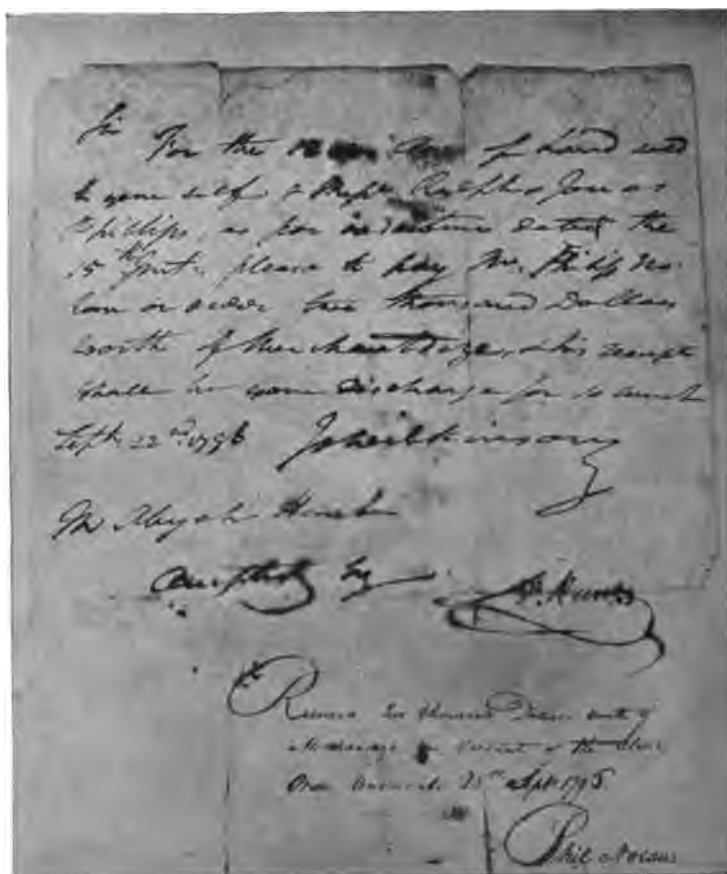 Sir
For the of hand
to your self & Ralph & Jonas
Phillips, as per indenture dated the
15th Inst. please to pay Mr. Philip No-
lan or order two thousand Dollars
worth of Merchandize, & his receipt
shall be your discharge for so much
Septr. 22nd. 1796 Ja Wilkinson
Mr Abijah Hunt
Accepted by A. Hunt
Received two thousand Dollars worth of
Merchandize on account of the above
Order 25th Sept 1796
Phil Nolan